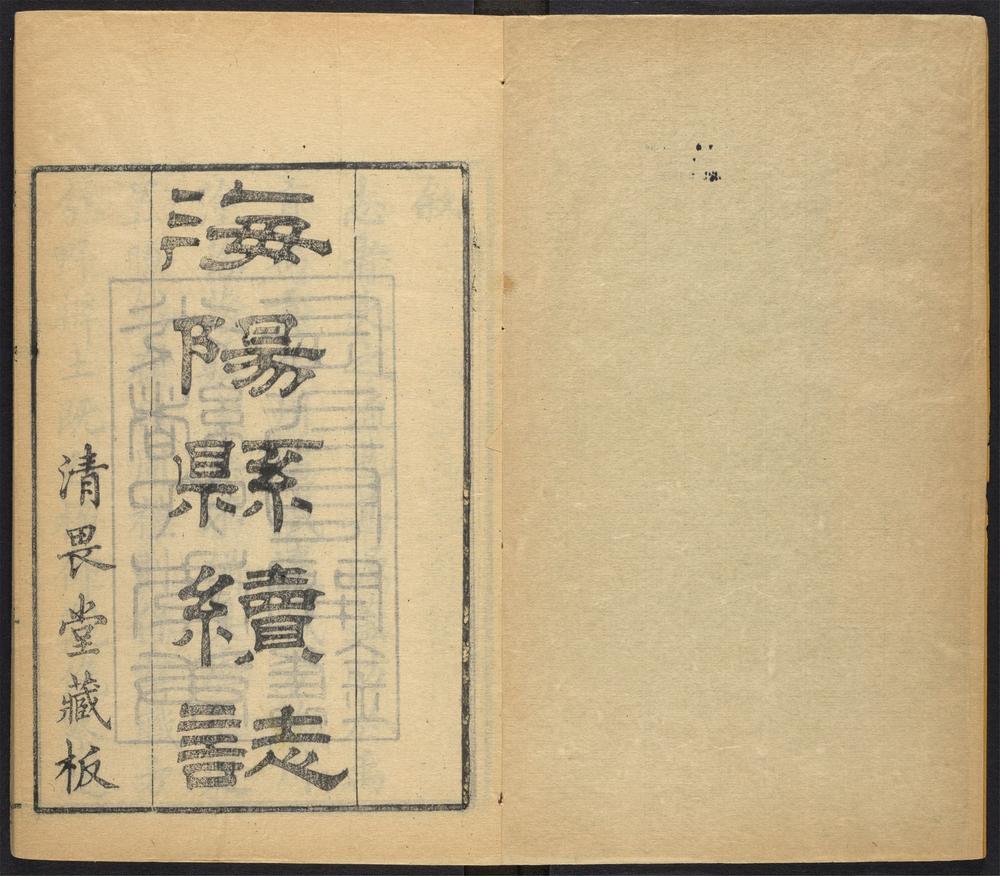 海陽縣續誌
清畏堂藏板